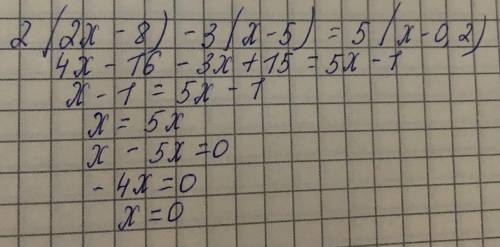 2(2x - 8) - 3(x - 5) = 5(x - 0,2)
4x - 16 - 3x + 15 = 5x - 1
x - 1 = 5x - 1
x = 5x
x - 5x = 0
- 4x = 0
x = 0